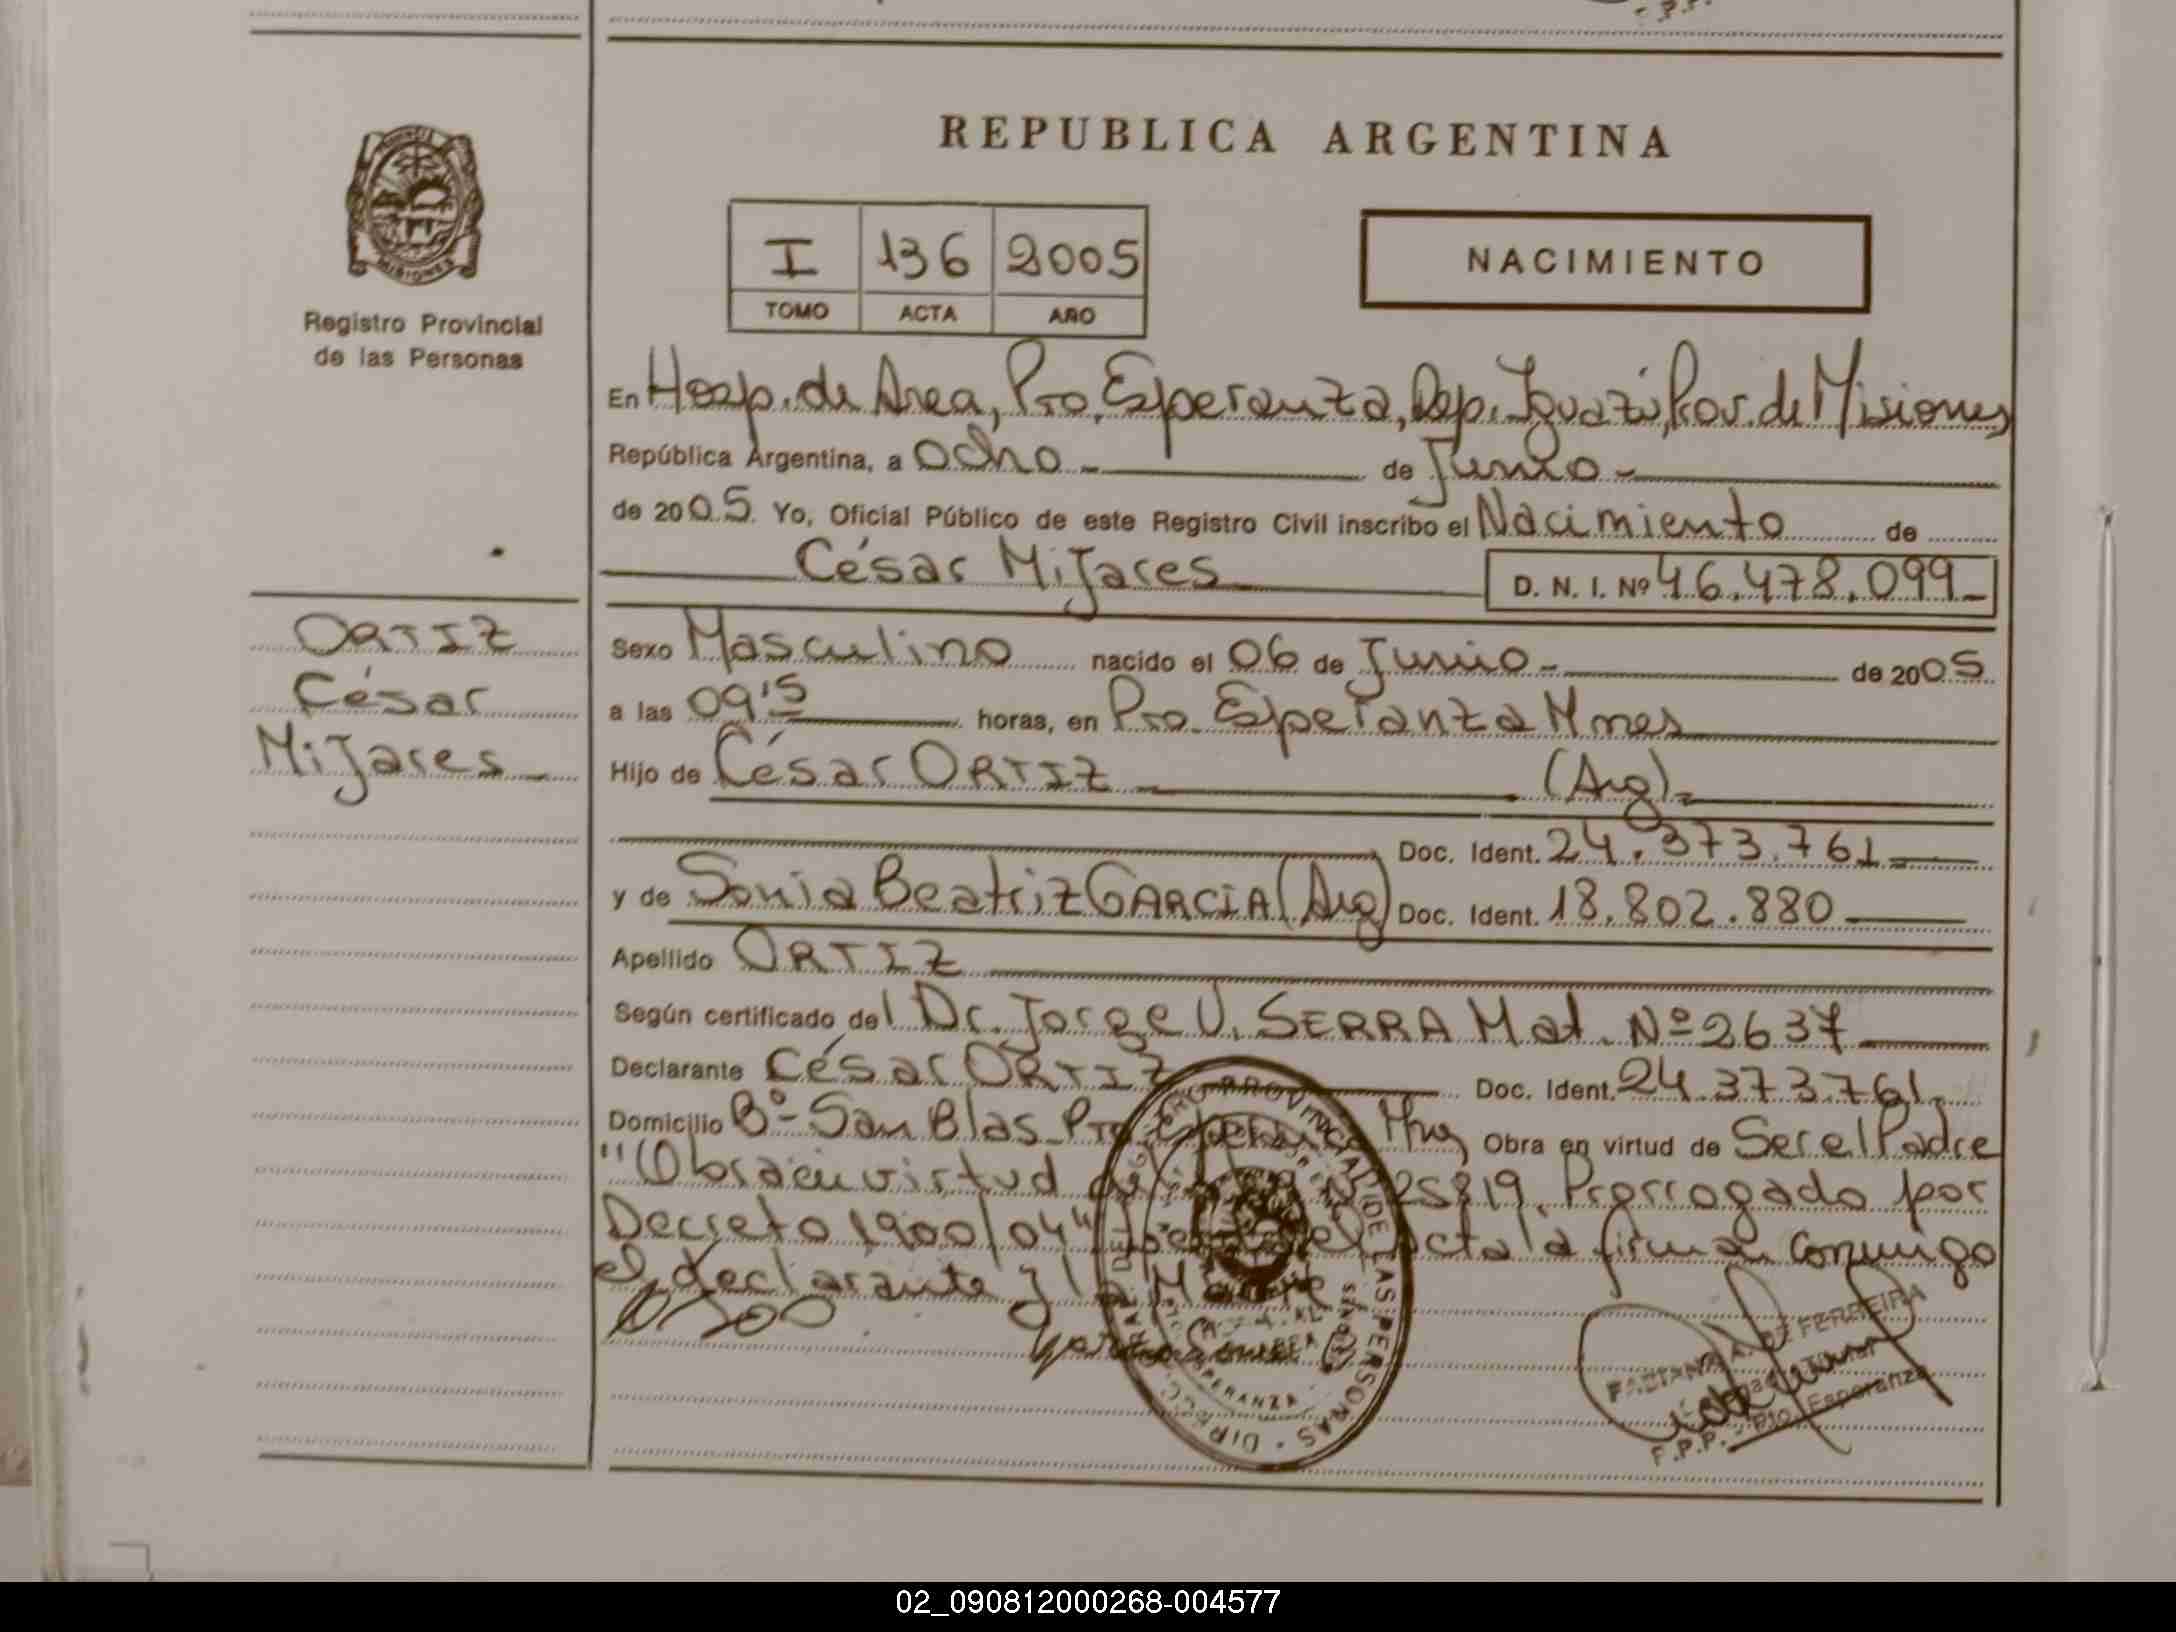 REPUBLICA ARGENTINA
MISIONES
Registro Provincial
de las Personas
I 136 2005
TOMO ACTA AÑO
NACIMIENTO
En Hosp. de Area, Pto. Esperanza, Dep. Iguazú, Prov. de Misiones
República Argentina, a ocho de Junio
de 2005. Yo, Oficial Público de este Registro Civil inscribo el Nacimiento de
César MiJares D. N. I. Nº 46.478.099
ORTIZ
César
MiJares
Sexo Masculino nacido el 06 de Junio de 2005
a las 09 15 horas, en Pto. Esperanza Mnes
Hijo de César ORTIZ (Arg).
Doc. Ident. 24.373.761
y de Sonia Beatriz GARCIA (Arg) Doc. Ident. 18.802.880
Apellido ORTIZ
Según certificado del Dr. Jorge V. SERRA Mat. Nº 2637
Declarante César ORTIZ Doc. Ident. 24.373.761
Domicilio Bº San Blas Pto Esperanza Obra en virtud de Ser el Padre
"Obra en virtud de 25819. Prorrogado por
Decreto 1900/04" acta la firman conmigo
el declarante y la Madre
REGISTRO PROVINCIAL DE LAS PERSONAS
ESPERANZA
FABIANA A. DE FERREIRA
Pto. Esperanza
02_090812000268-004577